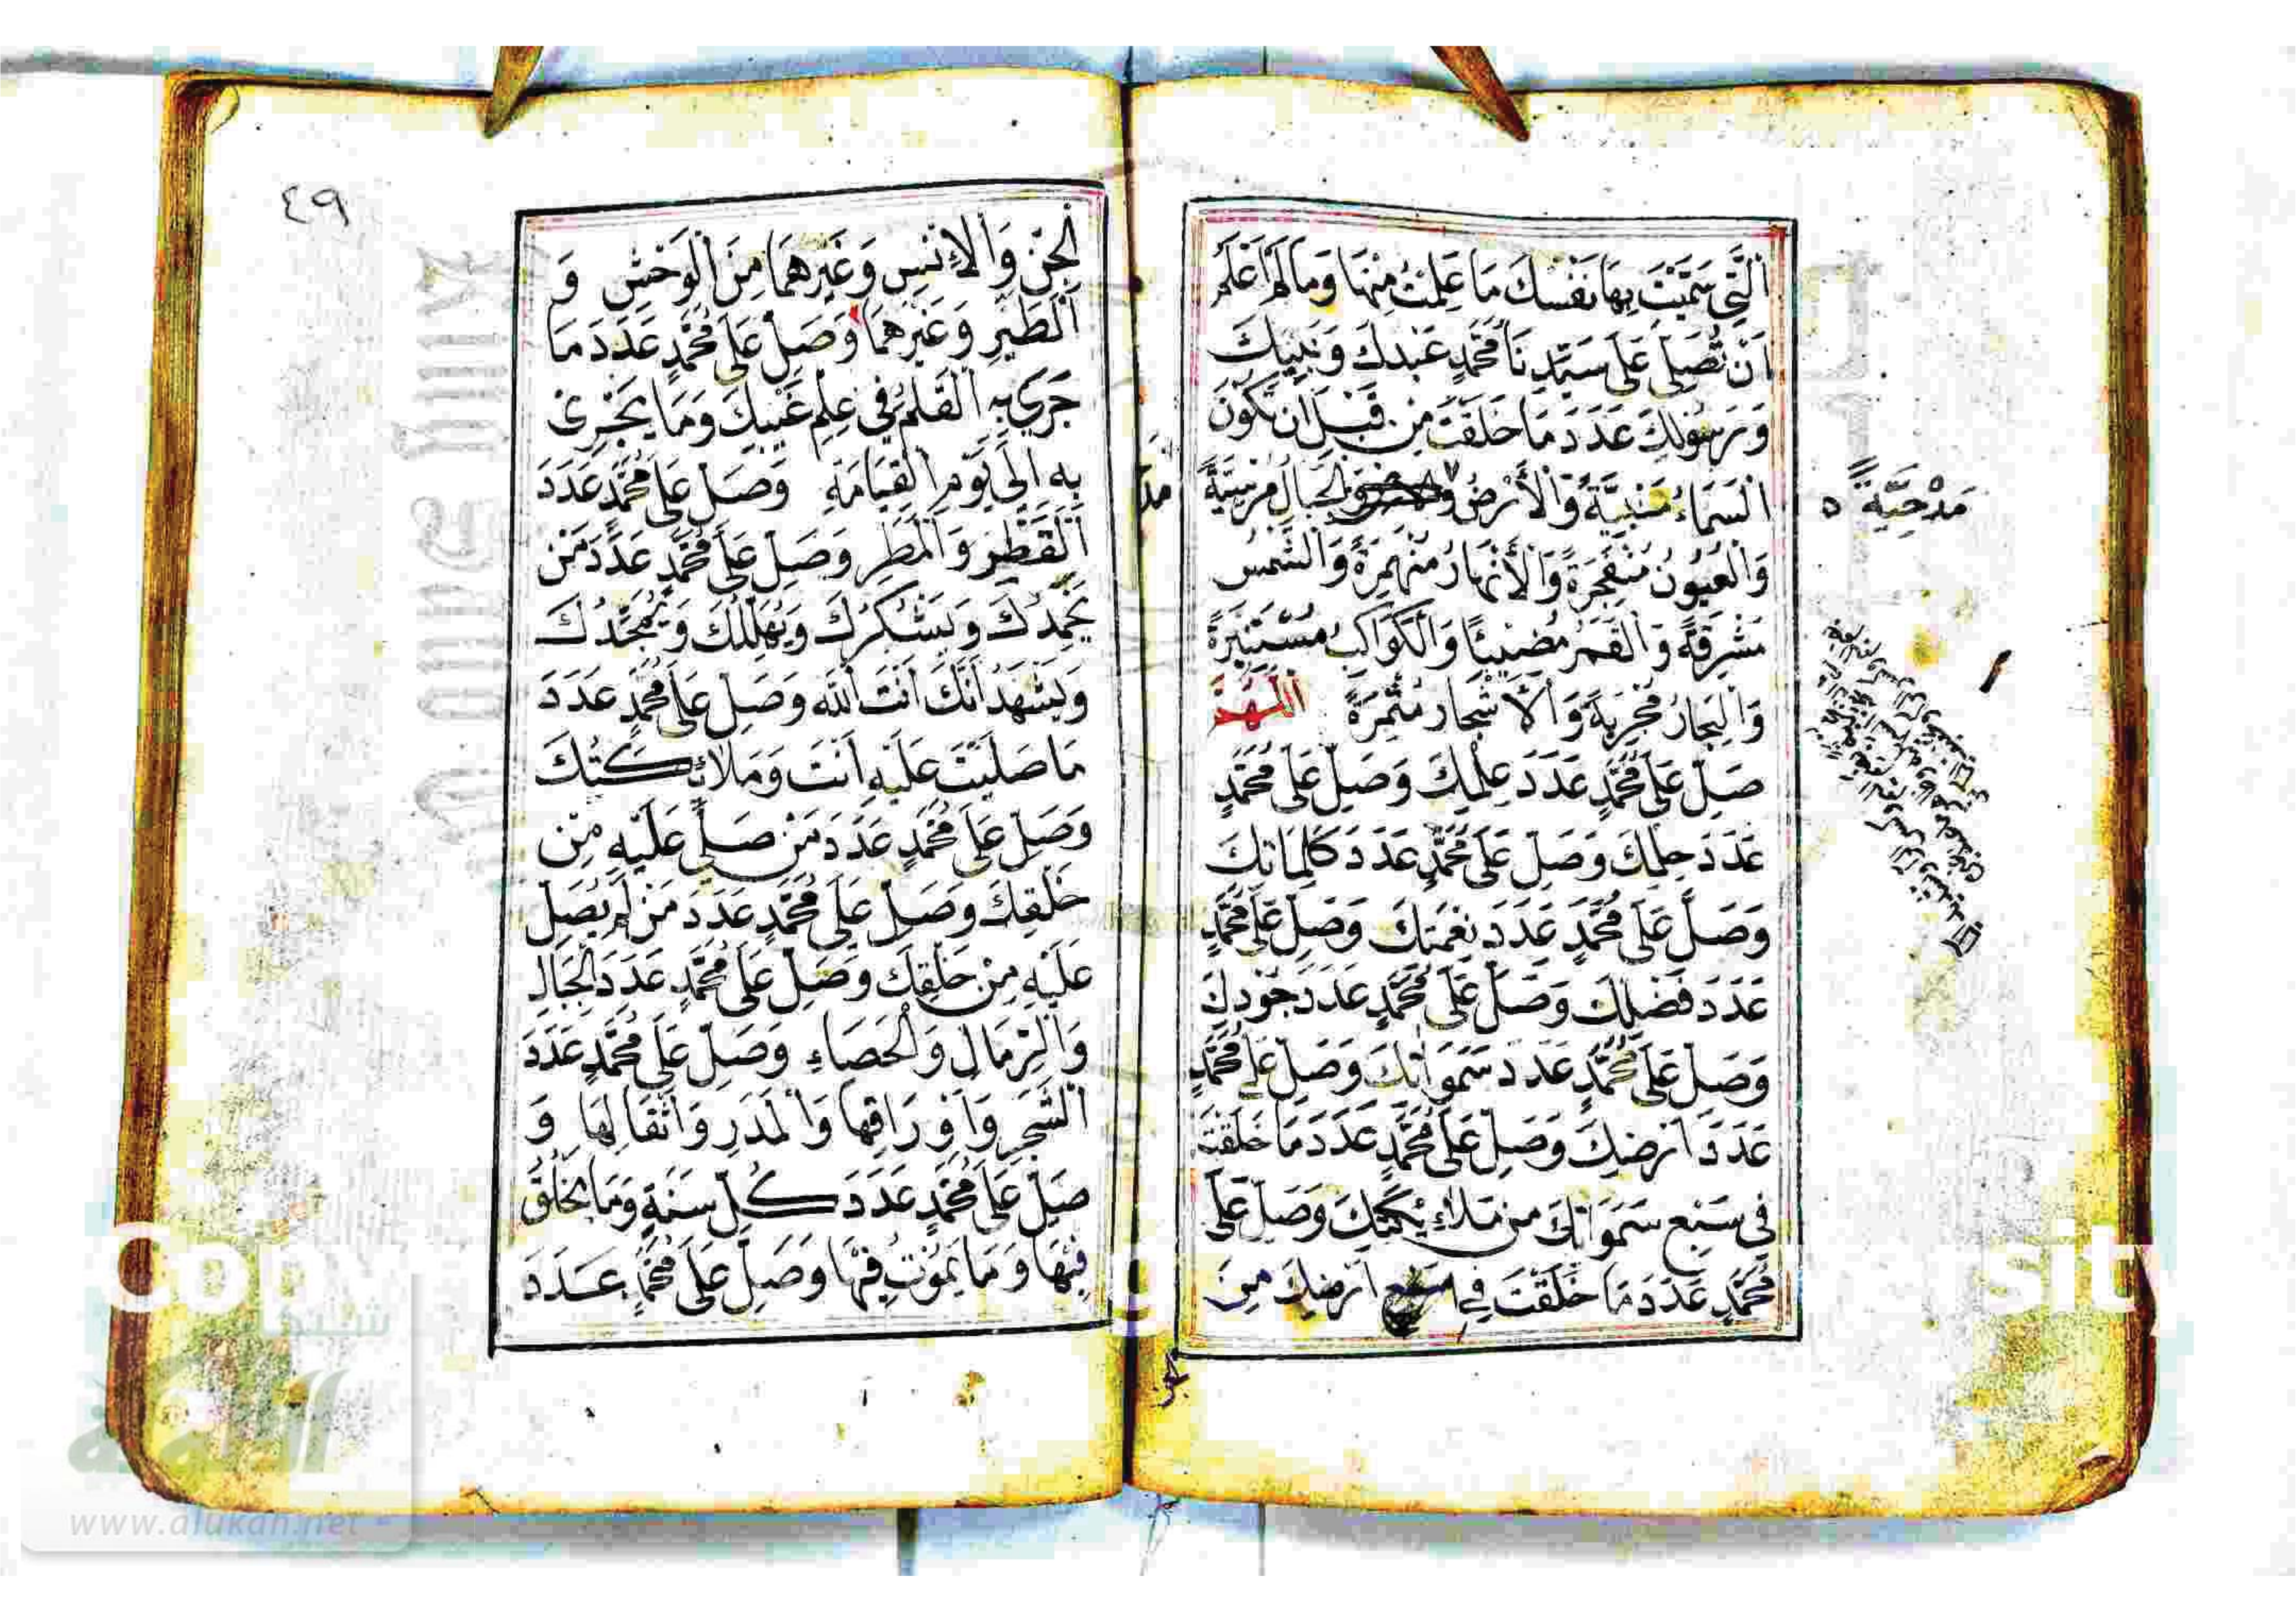 اَلَّتِي سَمَّيْتَ بِهَا نَفْسَكَ مَا عَلِمْتُ مِنْهَا وَمَا لَمْ اَعْلَمْ
اَنْ تُصَلِّيَ عَلَى سَيِّدِنَا مُحَمَّدٍ عَبْدِكَ وَنَبِيِّكَ
وَرَسُولِكَ عَدَدَ مَا خَلَقْتَ مِنْ قَبْلِ اَنْ تَكُونَ
السَّمَاءُ مَبْنِيَّةً وَالْأَرْضُ وَالْجِبَالُ مُرْسِيَّةً
مَدْحِيَّةً ٥
وَالْعُيُونُ مُنْفَجِرَةً وَالْأَنْهَارُ مُنْهَمِرَةً وَالشَّمْسُ
مُشْرِقَةً وَالْقَمَرُ مُضِيئًا وَالْكَوَاكِبُ مُسْتَنِيرَةً
وَالْبِحَارُ مُجْرِيَةً وَالْأَشْجَارُ مُثْمِرَةً اَللّٰهُمَّ
صَلِّ عَلَى مُحَمَّدٍ عَدَدَ عِلْمِكَ وَصَلِّ عَلَى مُحَمَّدٍ
عَدَدَ حِلْمِكَ وَصَلِّ عَلَى مُحَمَّدٍ عَدَدَ كَلِمَاتِكَ
وَصَلِّ عَلَى مُحَمَّدٍ عَدَدَ نِعْمَتِكَ وَصَلِّ عَلَى مُحَمَّدٍ
عَدَدَ فَضْلِكَ وَصَلِّ عَلَى مُحَمَّدٍ عَدَدَ جُودِكَ
وَصَلِّ عَلَى مُحَمَّدٍ عَدَدَ سَمَوَاتِكَ وَصَلِّ عَلَى مُحَمَّدٍ
عَدَدَ اَرْضِكَ وَصَلِّ عَلَى مُحَمَّدٍ عَدَدَ مَا خَلَقْتَ
فِي سَبْعِ سَمَوَاتِكَ مِنْ مَلَائِكَتِكَ وَصَلِّ عَلَى
مُحَمَّدٍ عَدَدَ مَا خَلَقْتَ فِي اَرْضِكَ مِنَ
الجن
٤٩
الْجِنِّ وَالْإِنْسِ وَغَيْرِهِمَا مِنَ الْوَحْشِ وَ
الطَّيْرِ وَغَيْرِهِمَا وَصَلِّ عَلَى مُحَمَّدٍ عَدَدَ مَا
جَرَى بِهِ الْقَلَمُ فِي عِلْمِ غَيْبِكَ وَمَا يَجْرِي
بِهِ اِلَى يَوْمِ الْقِيَامَةِ وَصَلِّ عَلَى مُحَمَّدٍ عَدَدَ
الْقَطْرِ وَالْمَطَرِ وَصَلِّ عَلَى مُحَمَّدٍ عَدَدَ مَنْ
يَحْمَدُكَ وَيَشْكُرُكَ وَيُهَلِّلُكَ وَيُمَجِّدُكَ
وَيَشْهَدُ اَنَّكَ اَنْتَ اللّٰهُ وَصَلِّ عَلَى مُحَمَّدٍ عَدَدَ
مَا صَلَّيْتَ عَلَيْهِ اَنْتَ وَمَلَائِكَتُكَ
وَصَلِّ عَلَى مُحَمَّدٍ عَدَدَ مَنْ صَلَّى عَلَيْهِ مِنْ
خَلْقِكَ وَصَلِّ عَلَى مُحَمَّدٍ عَدَدَ مَنْ لَمْ يُصَلِّ
عَلَيْهِ مِنْ خَلْقِكَ وَصَلِّ عَلَى مُحَمَّدٍ عَدَدَ الْجِبَالِ
وَالرِّمَالِ وَالْحَصَاءِ وَصَلِّ عَلَى مُحَمَّدٍ عَدَدَ
الشَّجَرِ وَاَوْرَاقِهَا وَالْمَدَرِ وَاَثْقَالِهَا وَ
صَلِّ عَلَى مُحَمَّدٍ عَدَدَ كُلِّ سَنَةٍ وَمَا تَخْلُقُ
فِيهَا وَمَا يَمُوتُ فِيهَا وَصَلِّ عَلَى مُحَمَّدٍ عَدَدَ
www.alukah.net